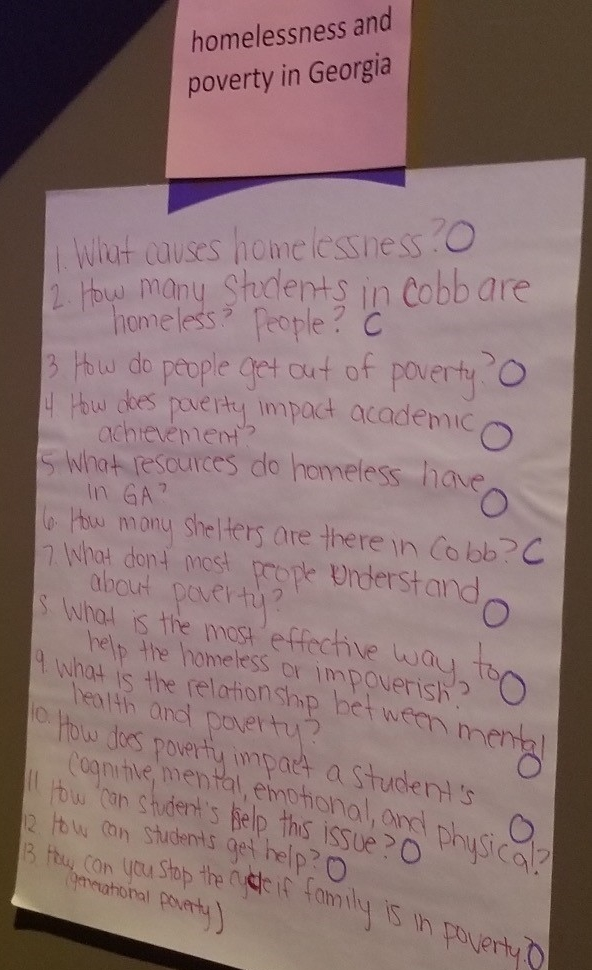 homelessness and
poverty in Georgia
1. What causes homelessness? O
2. How many Students in Cobb are
homeless? People? C
3. How do people get out of poverty? O
4 How does poverty impact academic
achievement? O
5. What resources do homeless have
in GA? O
6. How many shelters are there in Cobb? C
7. What dont most people understand
about poverty? O
8. What is the most effective way to
help the homeless or impoverish? O
9. What is the relationship between mental
health and poverty? O
10. How does poverty impact a student's
cognitive, mental, emotional, and physical? O
11 How can student's help this issue? O
12 How can students get help? O
13. How can you stop the cycle if family is in poverty? O
(generational poverty)